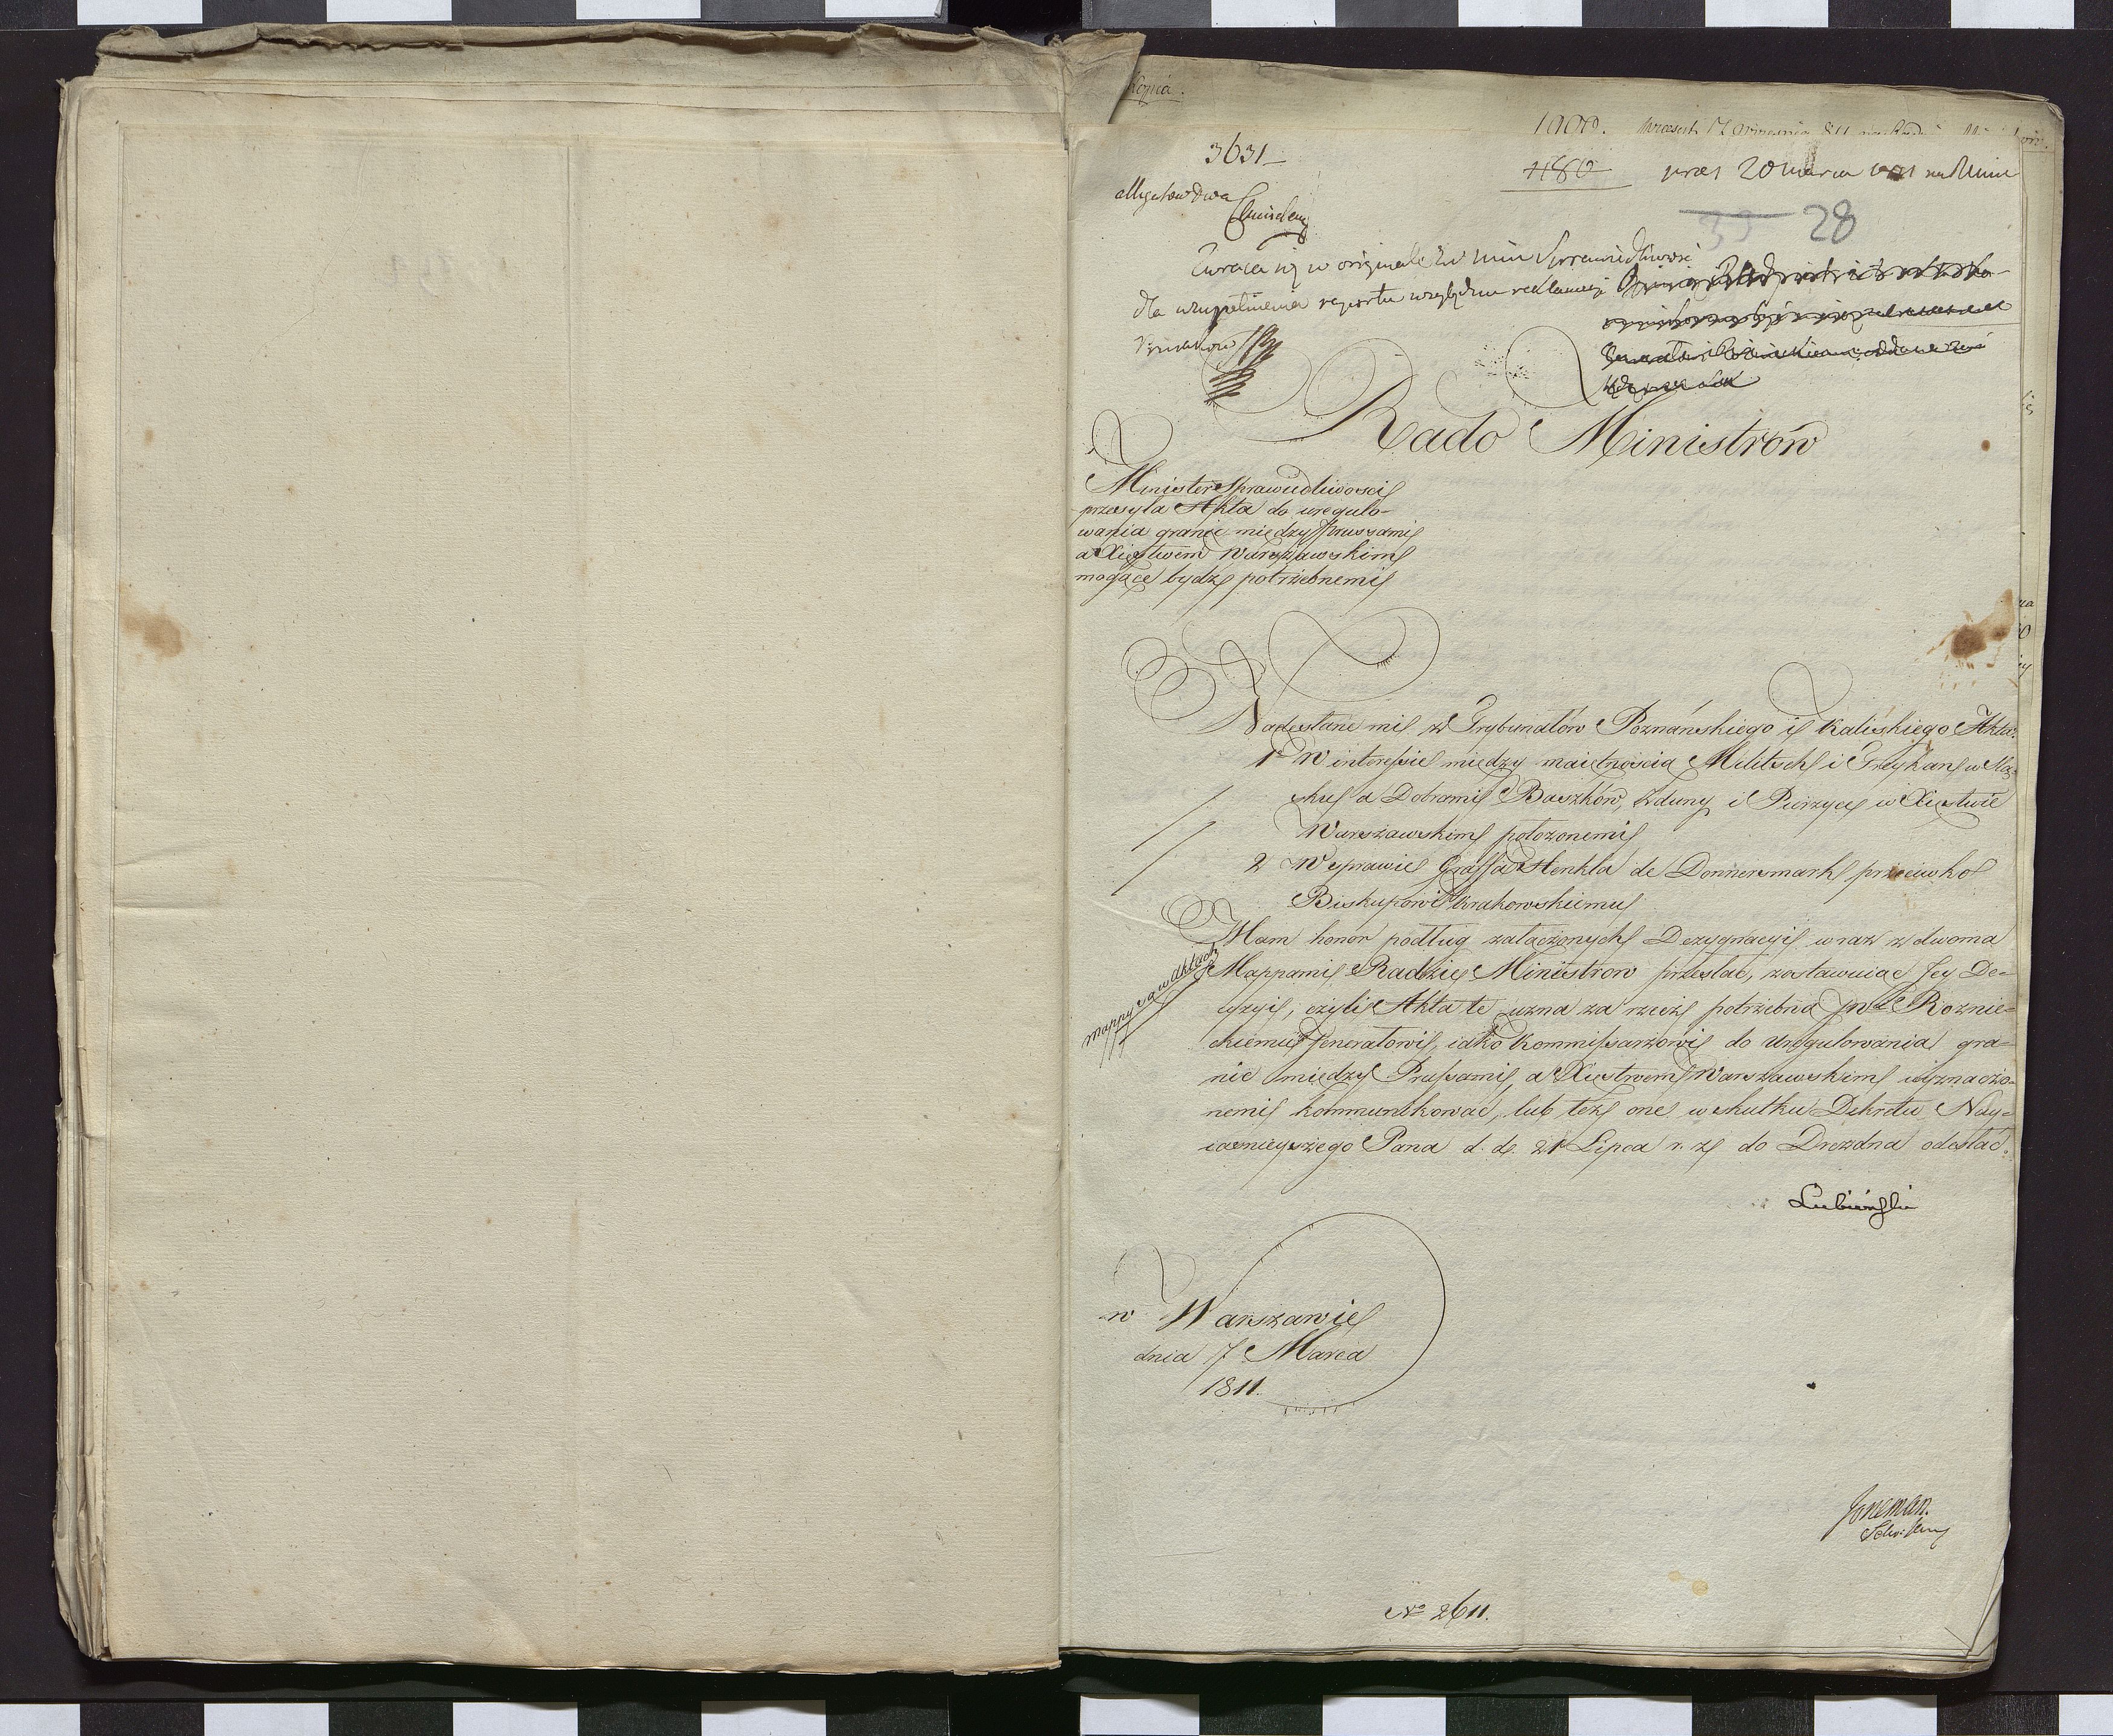 Kopia.
1000.
3631
480
pres 20 marca
allegatow dwa
28
Zwraca się w originale
dla uzupełnienia raportu względem reklamacji
Rado Ministrow
Minister Sprawiedliwosci
przesyła Akta do uregulo-
wania granic między Prussami
a Xięstwem Warszawskim
mogące bydz potrzebnemi
Nadesłane mi z Trybunałow Poznańskiego i Kaliskiego Akta:
1o W interessie między maiętnoscią Militsch i Freyhan w Slą-
sku a Dobrami Baszkow, Zduny i Pierzyce w Xięstwie
Warszawskim położonemi
2 W sprawie Graffa Henkla de Donnersmark przeciwko
Biskupowi Krakowskiemu
Mam honor podług załączonych Dezygnacyi wraz z dwoma
Mappami Radzie Ministrow przesłac, zostawuiąc Jey De-
mappy są w Aktach
cyzyi, czyli Akta te uzna za rzecz potrzebną JW Roznie-
ckiemu Jenerałowi, iako Kommissarzowi do Uregulowania gra-
nic między Prussami, a Xięstwem Warszawskim wyznaczo-
nemu kommunikowac, lub też one w skutku Dekretu Nay-
iasnieyszego Pana d. d. 21 Lipca r. z. do Drezdna odesłac.
Lubieński
w Warszawie
dnia 7 Marca
1811.
Joneman.
No 2611.